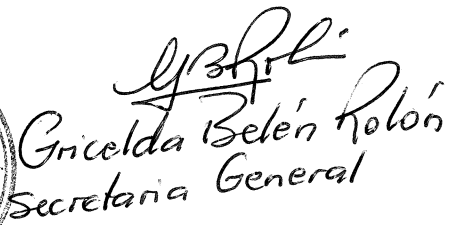 GBRoló
Gricelda Belén Rolón
Secretaria General